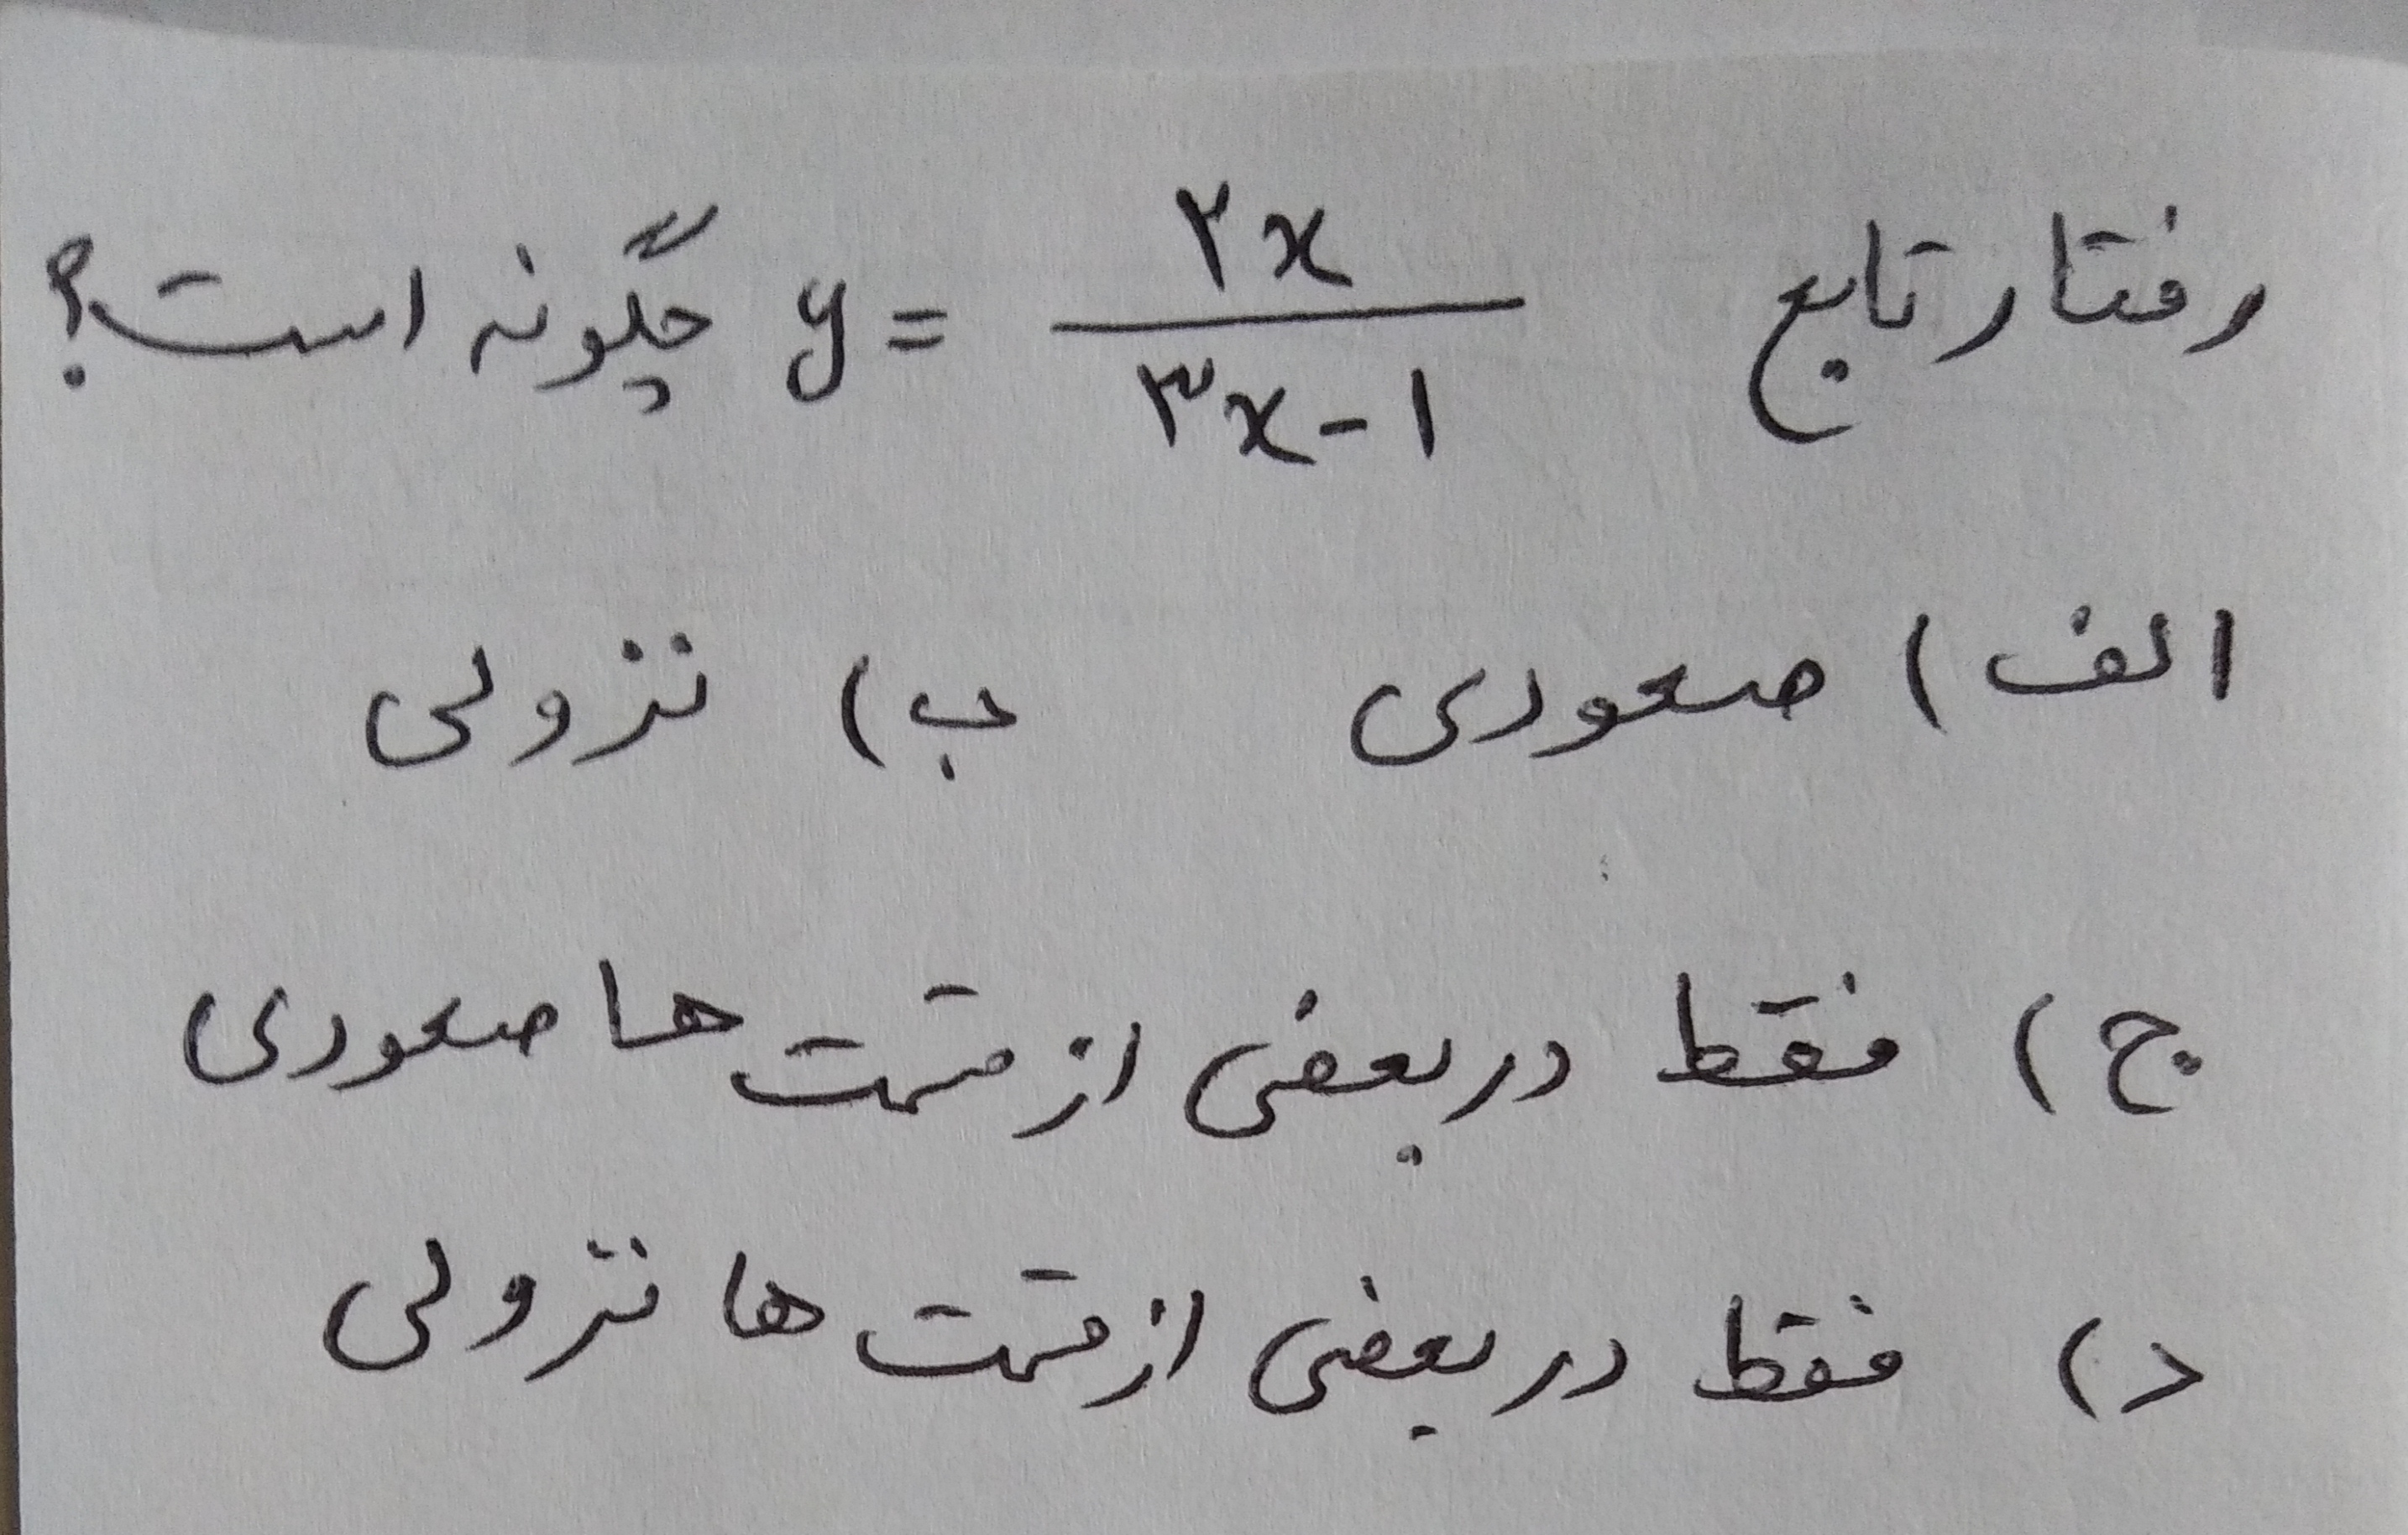 رفتار تابع y = ۲x / ۳x - ۱ چگونه است؟
الف) صعودی ب) نزولی
ج) فقط در بعضی از قسمت ها صعودی
د) فقط در بعضی از قسمت ها نزولی